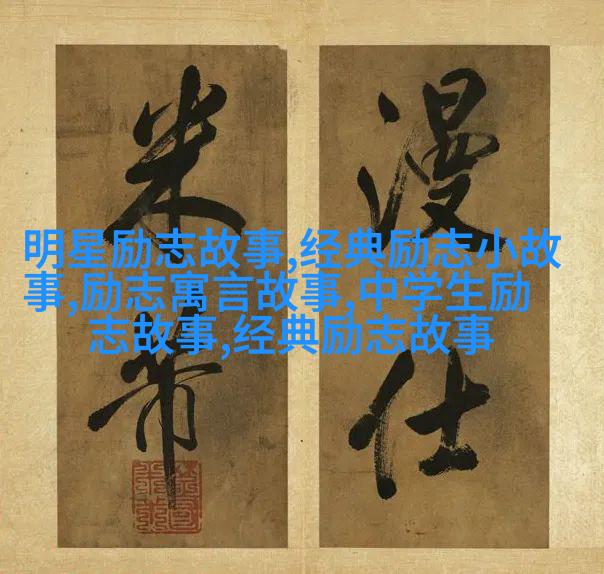 明星励志故事,经典励志小故
事,励志寓言故事,中学生励
志故事,经典励志故事
漫仕
米芾